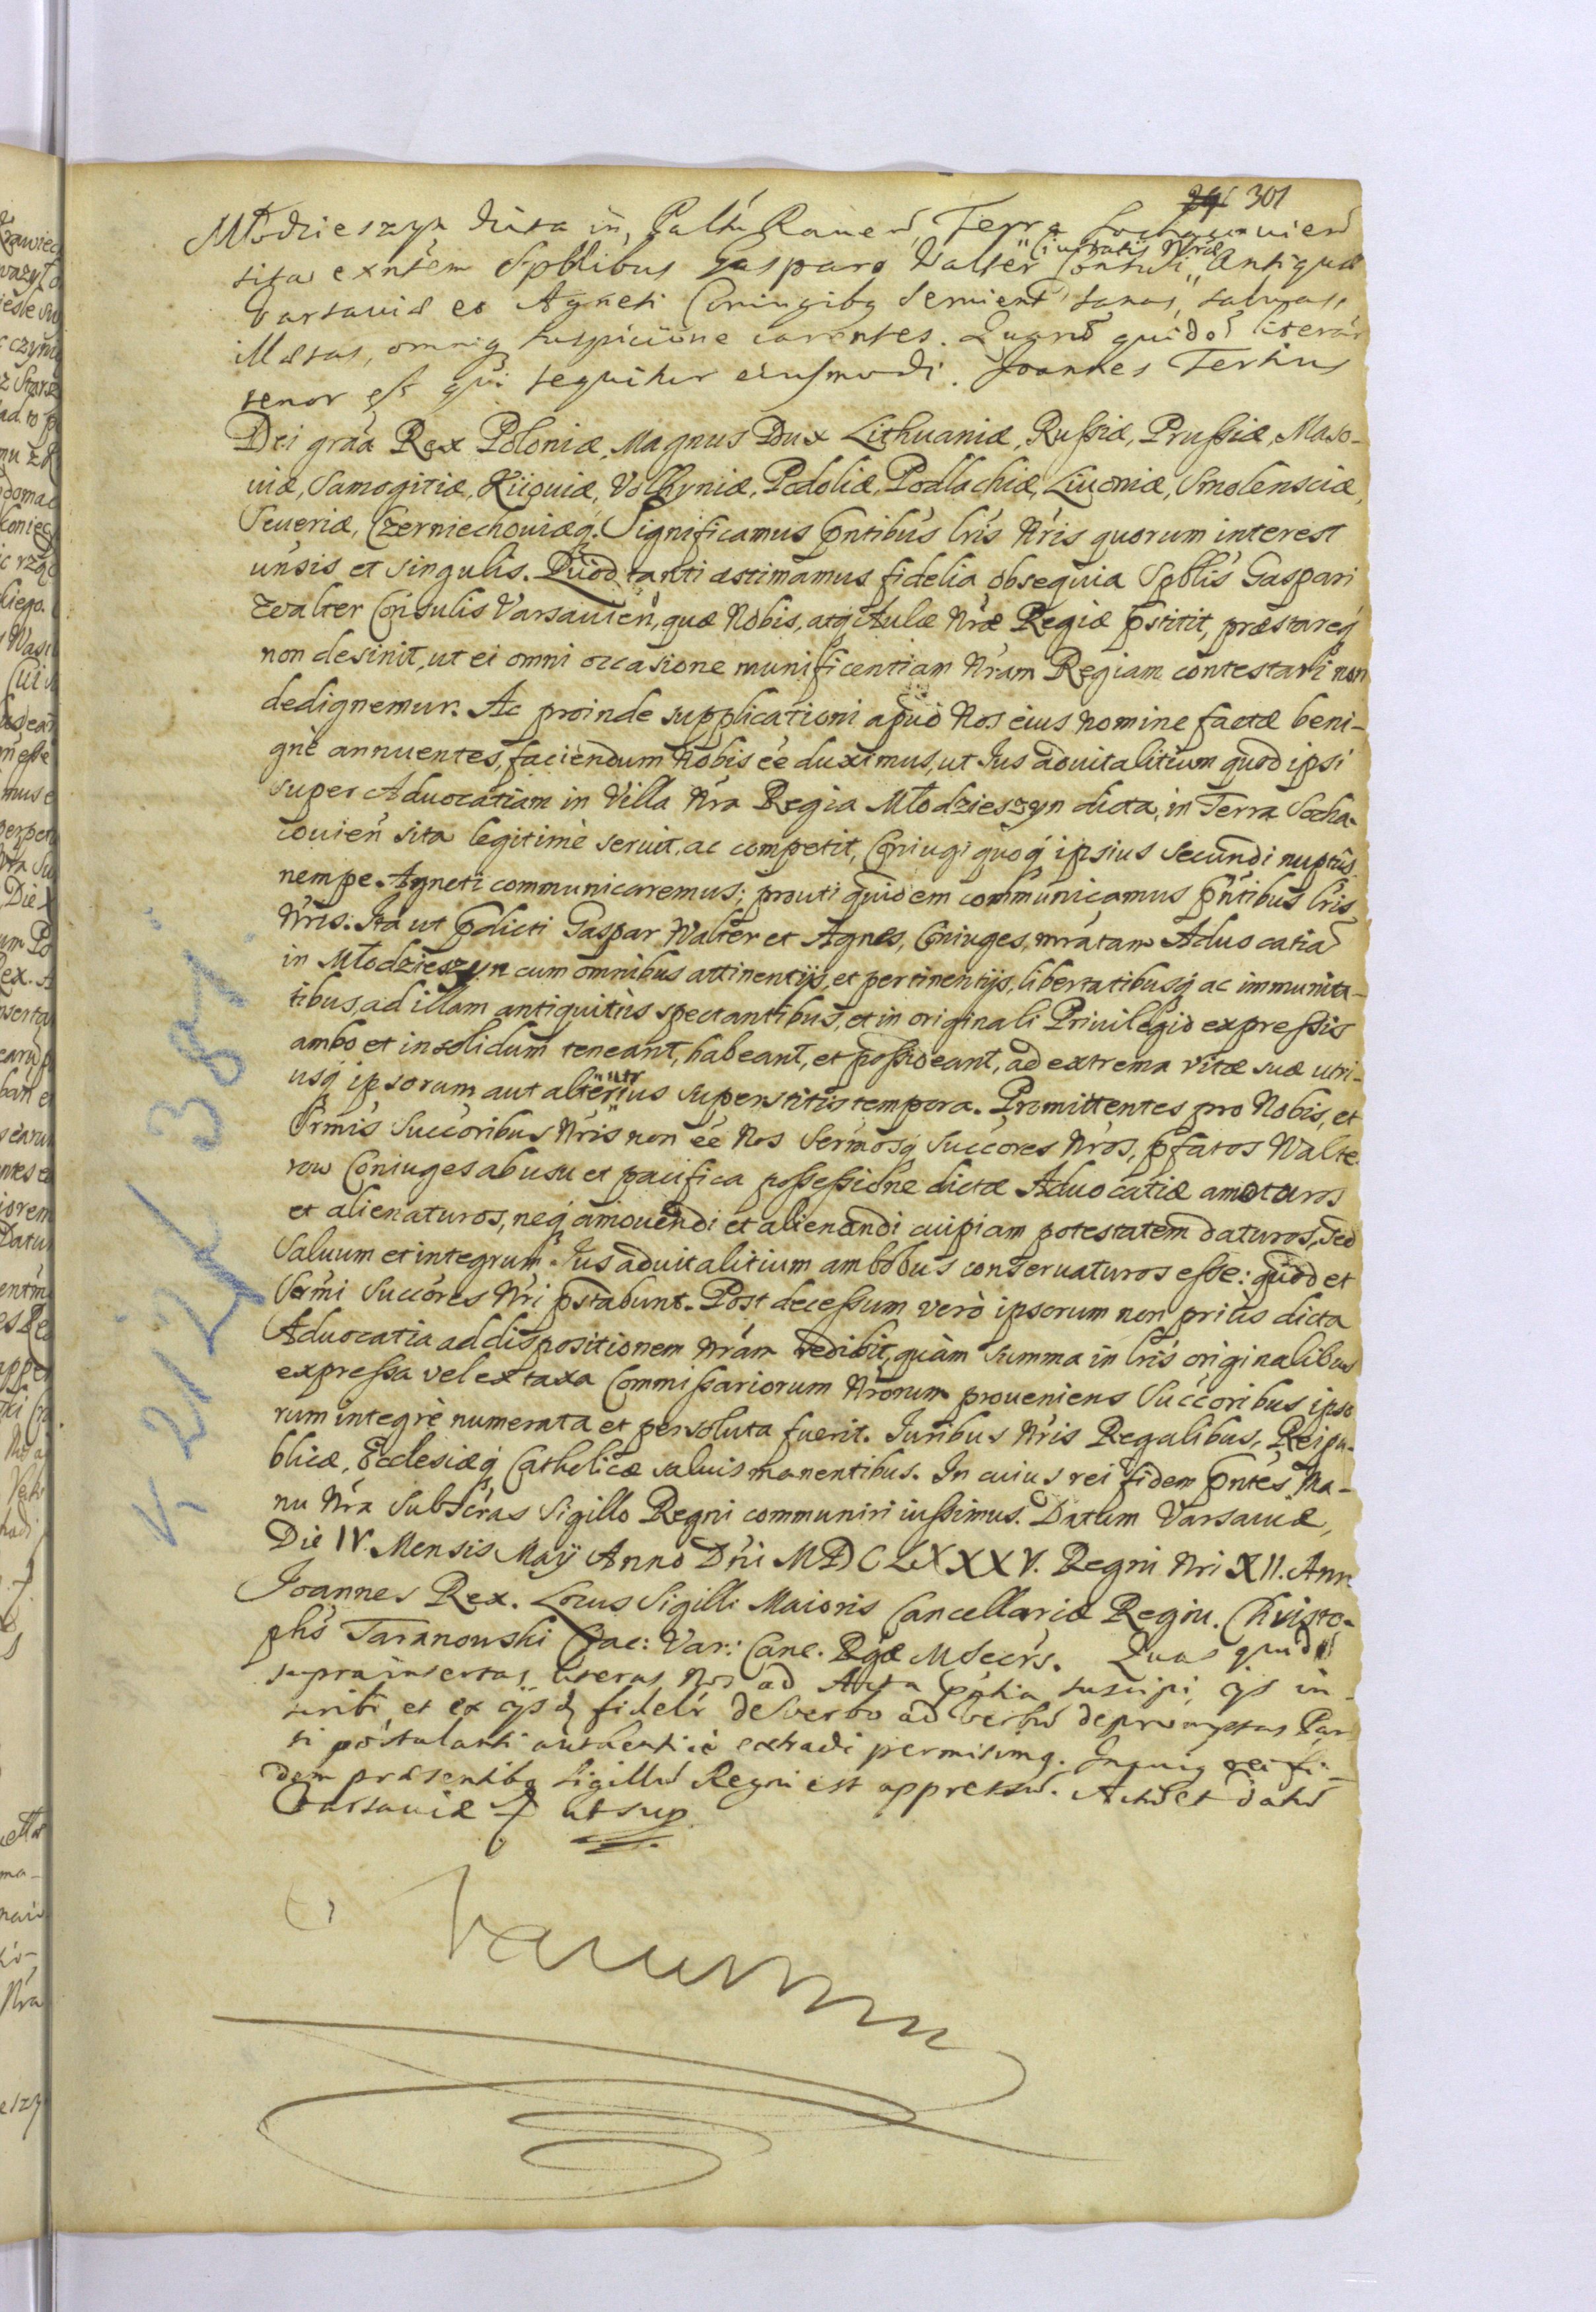 301
Młodzieszyn dicta in Paltu Rauen Terra Sochaczouien
sita exntem Spblibus Gasparo Walter Consuli "Ciuitatis Nræ" Antiquæ
Varsauiæ et Agneti Coniugibq seruient sanas, saluas,
illæsas, omniq suspicione carentes. Quarũ quidẽ literar
tenor est qui sequitur eiusmodi. Joannes Tertius
Dei grãa Rex Poloniæ, Magnus Dux Lithuaniæ, Russiæ, Prussiæ, Maso-
uiæ, Samogitiæ, Kiiouiæ, Volhyniæ, Podoliæ, Podlachiæ, Liuoniæ, Smolensciæ,
Seueriæ, Czerniechouiæq. Significamus pntibus lris Nris quorum interest
unsis et singulis. Quod tanti æstimamus fidelia obsequia Spblis Gaspari
Walter Consulis Varsauien, quæ Nobis, atq Aulæ Nræ Regiæ pstitit, præstareq
non desinit, ut ei omni occasione munificentiam Nram Regiam contestari non
dedignemur. Ac proinde supplicationi apud Nos eius nomine factæ beni-
gnè annuentes, faciendum Nobis ee duximus, ut Ius aduitalitium quod ipsi
super Aduocatiam in Villa Nra Regia Młodzieszyn dicta, in Terra Socha-
couien sita legitimè seruit, ac competit, Coniugi quoq ipsius secundi nuptus
nempe Agneti communicaremus; prouti quidem communicamus pntibus lris
Nris. Ita ut pdicti Gaspar Walter et Agnes, Coniuges, mratam Aduocatiã
in Młodzieszyn cum omnibus attinentijs, et pertinentijs, libertatibusq ac immunita-
tibus, ad illam antiquitùs spectantibus, et in originali Priuilegio expressis
ambo et in solidum teneant, habeant, et possideant, ad extrema vitæ suæ utri-
usq ipsorum aut alterius superstitis tempora. Promittentes pro Nobis, et
Srmis Succoribus Nris non ee Nos Sermosq Succores Nros, pfatos Walte-
row Coniuges ab usu et pacifica possessione dictæ Aduocatiæ amoturos
et alienaturos, neq amouendi et alienandi cuipiam potestatem daturos, sed
saluum et integrum Ius aduitalitium ambobus conseruaturos esse: quod et
Sermi Succores Nri pstabunt. Post decessum verò ipsorum non priùs dicta
Aduocatia ad dispositionem Nram redibit, quàm summa in lris originalibus
expressa vel ex taxa Commissariorum Nrorum proueniens Succoribus ipso
rum integrè numerata et persoluta fuerit. Iuribus Nris Regalibus, Reipu-
blicæ, Ecclesiæq Catholicæ saluis manentibus. In cuius rei fidem pntes Ma-
nu Nra Subscras Sigillo Regni communiri iussimus. Datum Varsauiæ,
Die IV. Mensis Maij Anno Dni MDCLXXXV. Regni Nri XII. Ann
Joannes Rex. Locus Sigilli Maioris Cancellariæ Regni. Christo-
phs Taranowski Vars: Canc. Rgæ M Secrs. Quas quidẽ
suprainsertas literas Nos ad Acta pntia suscipi, ijs in-
scribi, et ex ijsdẽ fideli de verbo ad verbũ depromptas Par
ti postulanti authenticè extradi permisimq. In cuiq rei fi-
dem præsentibq Sigillũ Regni est appressũ. Actũ et datũ
Varsauiæ ut sup.